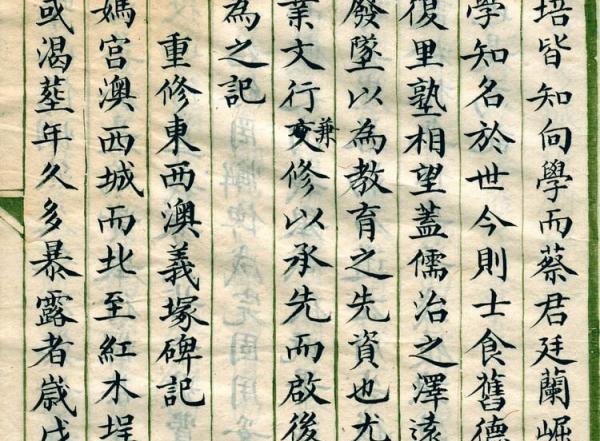 培皆知向學而蔡君廷蘭崛
學知名於世今則士食舊德
復里塾相望蓋儒治之澤遠
廢墜以為教育之先資也尤
業文行兼交修以承先而啟後
為之記
重修東西澳義塚碑記
媽宮澳西城而北至紅木埕
或渴塟年久多暴露者歲戊